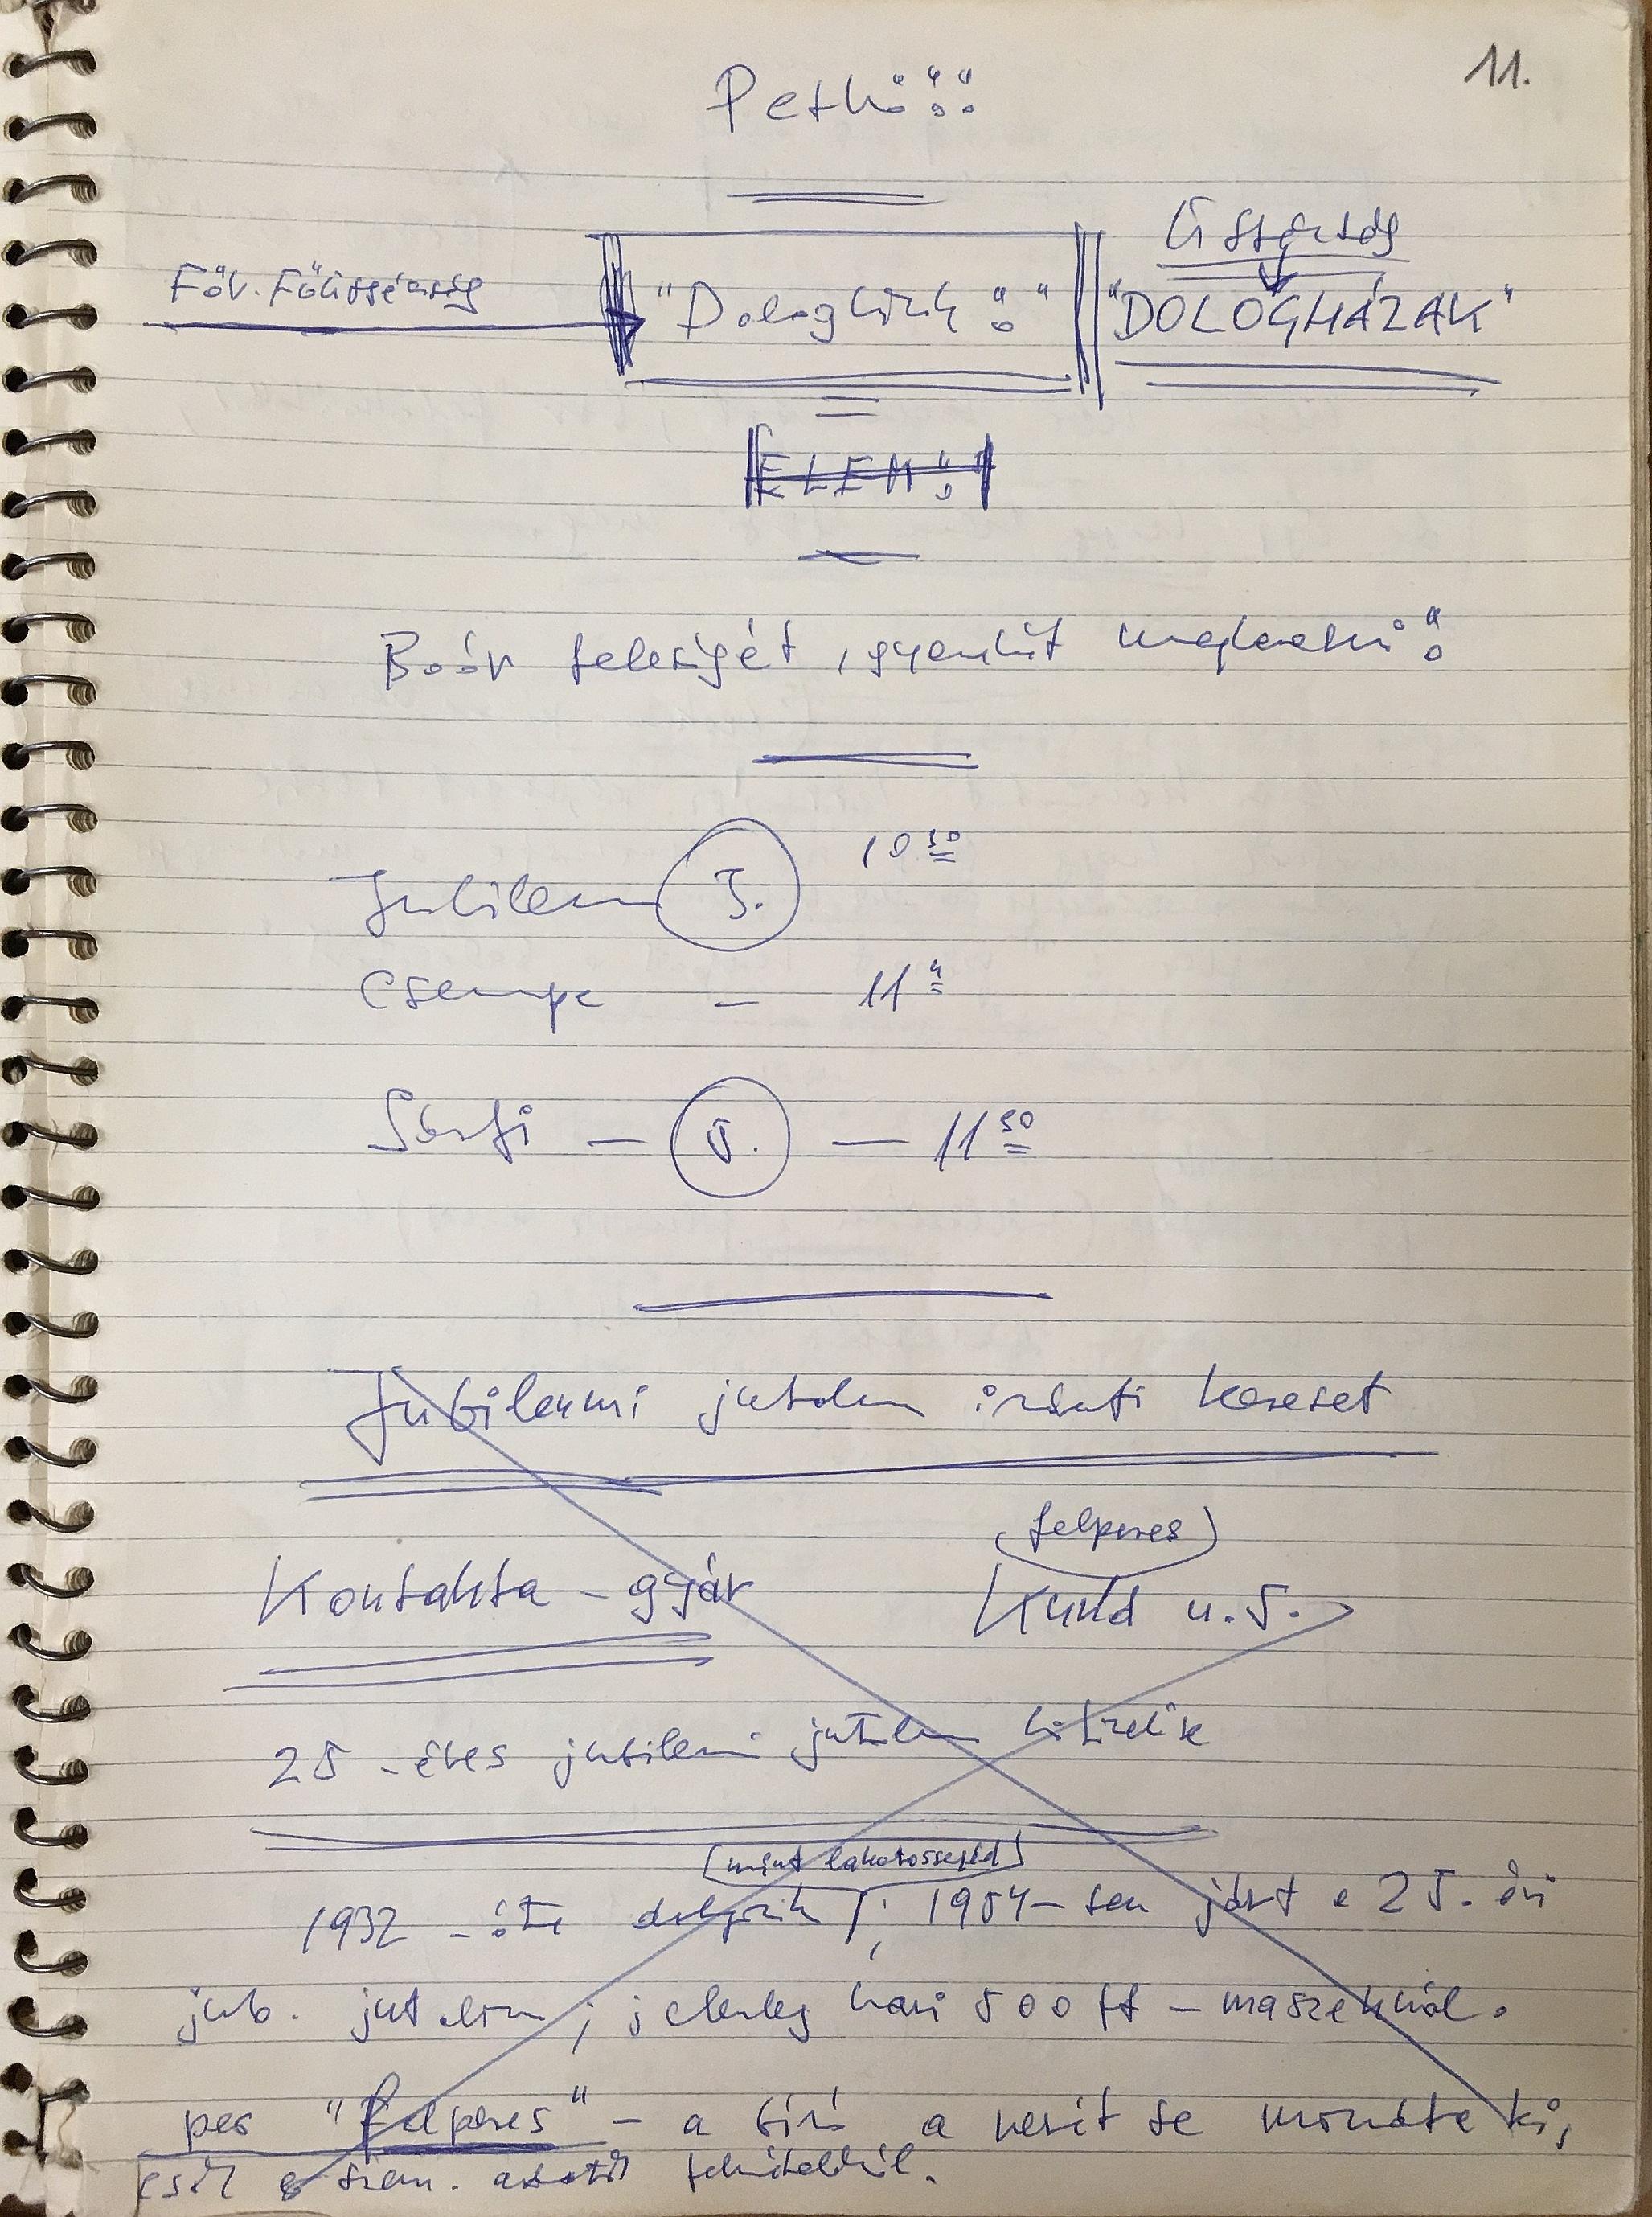 11.
Pethő
Ügyészség
Főv. Főügyészség
"DOLOGHÁZAK"
ELEM
Boór feleségét, gyerekét
Jubileum I. 10 30
Csempe - 11
- 11 30
Jubileumi jutalom iránti kereset
felperes
Kontakta - gyár
25 - éves jubileumi jutalom
(mint lakatossegéd)
1932 - óta dolgozik; 1954-ben járt a 25. évi
jub. jutalom; jelenleg havi 500 ft - maszeknál.
per "felperes" - a bíró a nevét se mondta ki,
csak a szem.